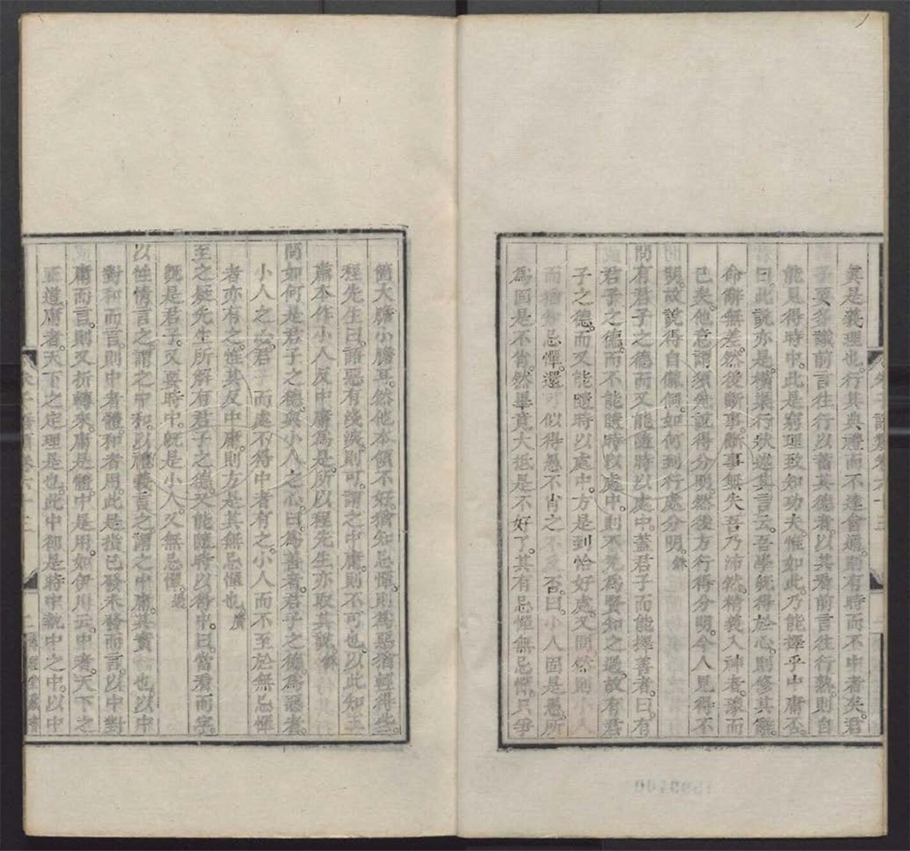 其是義理也行其典禮而不達會通則有時而不中者矣君
子要多識前言往行以蓄其德者以其看前言往行熟則自
能見得時中此是窮理致知功夫惟如此乃能擇乎中庸否
曰此說亦是橫渠行狀述其言云吾學既得於心則修其辭
命辭無差然後斷事斷事無失吾乃沛然精義入神者豫而
已矣他意謂須先說得分明然後方行得分明今人見得不
明故說得自儱侗如何到行處分明
問有君子之德而又能隨時以處中蓋君子而能擇善者曰有
君子之德而不能隨時以處中則不免為賢知之過故有君
子之德而又能隨時以處中方是到恰好處又問然則小人
而猶忌憚還可似得愚不肖之不及否曰小人固是愚所
為固是不肖然畢竟大抵是不好了其有忌憚無忌憚只爭
箇大膽小膽耳然他本領不好猶知忌憚則為惡猶輕得些
程先生曰語惡有淺深則可謂之中庸則不可也以此知王
肅本作小人反中庸為是所以程先生亦取其說
問如何是君子之德與小人之心曰為善者君子之德為惡者
小人之心君子而處不得中者有之小人而不至於無忌憚
者亦有之惟其反中庸則方是其無忌憚也
至之疑先生所解有君子之德又能隨時以得中曰當看而字
既是君子又要時中既是小人又無忌憚
以性情言之謂之中和以禮義言之謂之中庸其實一也以中
對和而言則中者體和者用此是指已發未發而言以中對
庸而言則又折轉來庸是體中是用如伊川云中者天下之
正道庸者天下之定理是也此中卻是時中執中之中以中